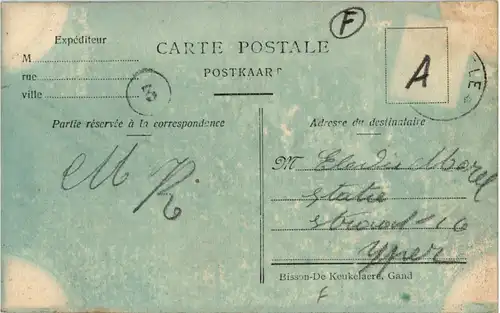 F
Expéditeur
M
rue
ville
CARTE POSTALE
POSTKAART
A
Partie réservée à la correspondance
Adresse du destinataire
M
M Morel
Statie
16
Yper
Bisson-De Keukelaere, Gand
F